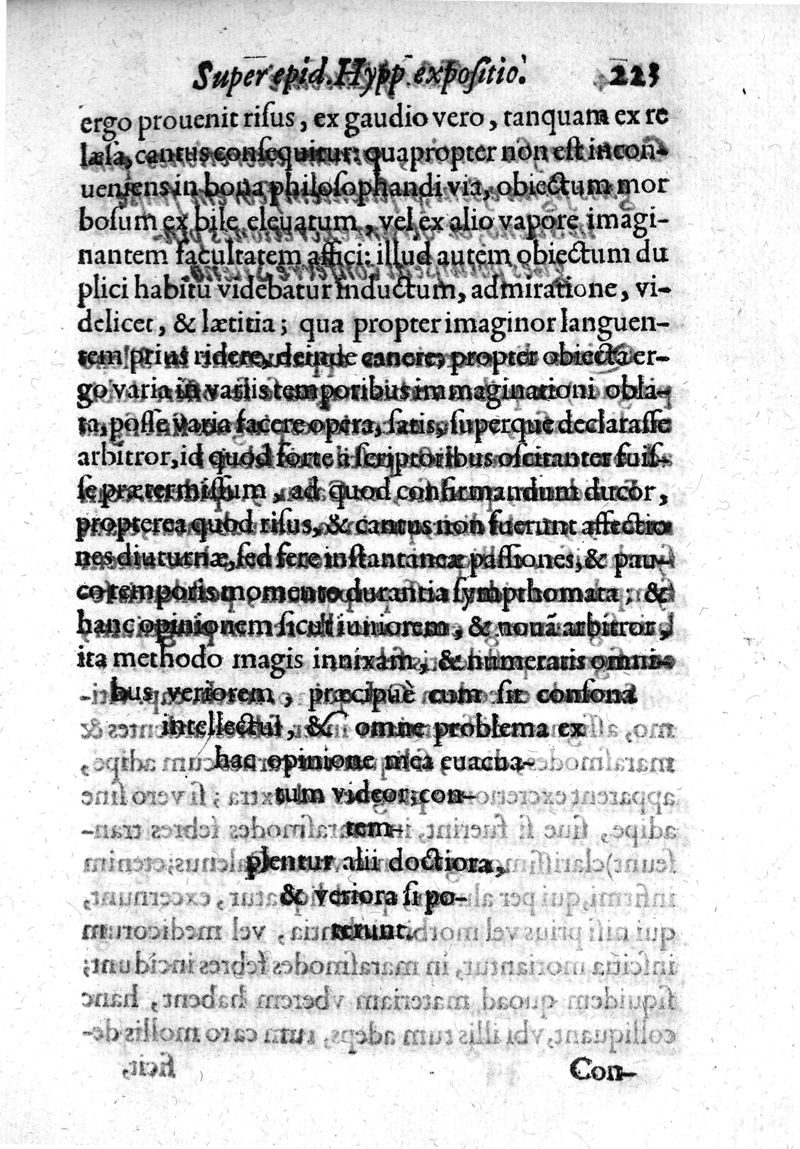 Super epid. Hypp expoſitio. 223
ergo prouenit riſus, ex gaudio vero, tanquam ex re
læſa, cantus conſequitur: quapropter non eſt incon-
ueniens in bona philoſophandi via, obiectum mor
boſum ex bile eleuatum, vel ex alio vapore imagi-
nantem facultatem affici: illud autem obiectum du
plici habitu videbatur inductum, admiratione, vi-
delicet, & lætitia; qua propter imaginor languen-
tem prius ridere, deinde canere; propter obiecta er-
go varia in variis temporibus immaginationi obla-
ta, poſſe varia facere opera, ſatis, ſuperque declaraſſe
arbitror, id quod forte a ſcriptoribus oſcitanter fuiſ-
ſe prætermiſſum, ad quod confirmandum ducor,
propterea quòd riſus, & cantus non fuerunt affectio
nes diuturnæ, ſed fere inſtantaneæ paſſiones, & pau-
co temporis momento durantia ſympthomata; &
hanc opinionem ſicuti iuniorem, & nouã arbitror,
ita methodo magis innixam, & numeratis omni-
bus veriorem, præcipuè cum ſit conſona
intellectui, & omne problema ex
hac opinione mea euacua-
tum videor; con-
tem-
plentur alii doctiora,
& veriora ſi po-
terunt.
Con-